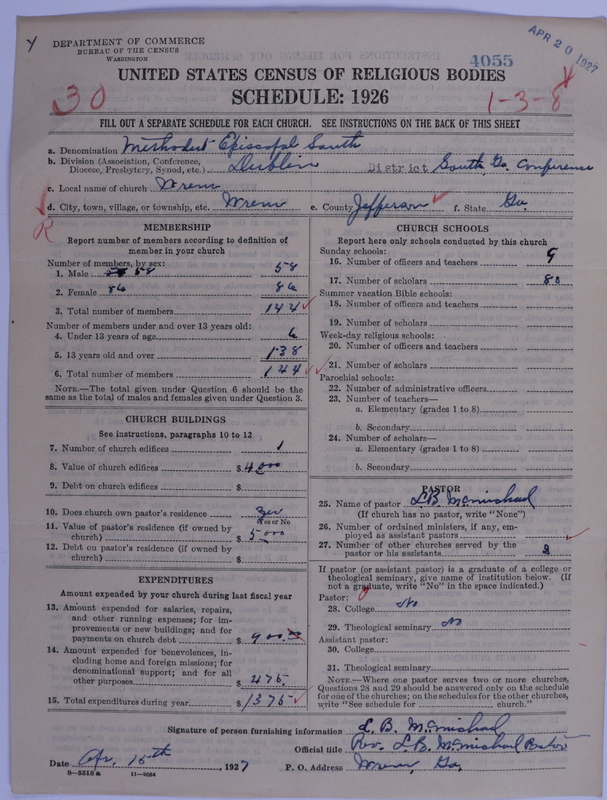 Y
DEPARTMENT OF COMMERCE
BUREAU OF THE CENSUS
WASHINGTON
4055
APR 20 1927
UNITED STATES CENSUS OF RELIGIOUS BODIES
30
SCHEDULE: 1926
1-3-8
FILL OUT A SEPARATE SCHEDULE FOR EACH CHURCH. SEE INSTRUCTIONS ON THE BACK OF THIS SHEET
a. Denomination Methodist Episcopal South
b. Division (Association, Conference, Diocese, Presbytery, Synod, etc.) Dublin District South Ga. Conference
c. Local name of church Wrens
d. City, town, village, or township, etc. Wrens e. County Jefferson f. State Ga.
R
MEMBERSHIP
Report number of members according to definition of member in your church
Number of members, by sex:
1. Male 58 58
2. Female 86 86
3. Total number of members 144
Number of members under and over 13 years old:
4. Under 13 years of age 6
5. 13 years old and over 138
6. Total number of members 144
NOTE.—The total given under Question 6 should be the same as the total of males and females given under Question 3.
CHURCH BUILDINGS
See instructions, paragraphs 10 to 12
7. Number of church edifices 1
8. Value of church edifices $ 4000
9. Debt on church edifices $
10. Does church own pastor's residence Yes
Yes or No
11. Value of pastor's residence (if owned by church) $ 5000
12. Debt on pastor's residence (if owned by church) $
EXPENDITURES
Amount expended by your church during last fiscal year
13. Amount expended for salaries, repairs, and other running expenses; for improvements or new buildings; and for payments on church debt $ 900.00
14. Amount expended for benevolences, including home and foreign missions; for denominational support; and for all other purposes $ 475.
15. Total expenditures during year $ 1375
CHURCH SCHOOLS
Report here only schools conducted by this church
Sunday schools:
16. Number of officers and teachers 9
17. Number of scholars 80
Summer vacation Bible schools:
18. Number of officers and teachers
19. Number of scholars
Week-day religious schools:
20. Number of officers and teachers
21. Number of scholars
Parochial schools:
22. Number of administrative officers
23. Number of teachers—
a. Elementary (grades 1 to 8)
b. Secondary
24. Number of scholars—
a. Elementary (grades 1 to 8)
b. Secondary
PASTOR
25. Name of pastor L.B. McMichael
(If church has no pastor, write "None")
26. Number of ordained ministers, if any, employed as assistant pastors
27. Number of other churches served by the pastor or his assistants 2
If pastor (or assistant pastor) is a graduate of a college or theological seminary, give name of institution below. (If not a graduate, write "No" in the space indicated.)
Pastor:
28. College No
29. Theological seminary No
Assistant pastor:
30. College
31. Theological seminary
NOTE.—Where one pastor serves two or more churches, Questions 28 and 29 should be answered only on the schedule for one of the churches; on the schedules for the other churches, write "See schedule for church."
Signature of person furnishing information L. B. McMichael
Official title Rev. L B McMichael Pastor
Date Apr. 15th, 1927 P. O. Address Wrens, Ga,
8—5318 a 11—9084